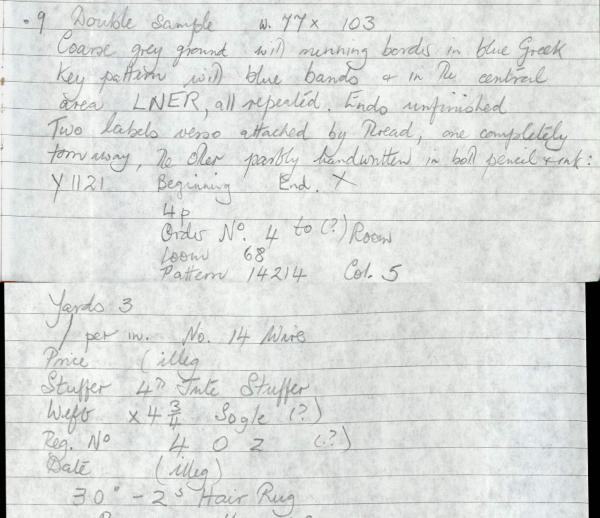 .9 Double Sample w. 77 x 103
Coarse grey ground with running border in blue Greek
Key pattern with blue bands & in the central
area LNER, all repeated. Ends unfinished
Two labels verso attached by thread, one completely
torn away, the other partly handwritten in both pencil & ink:
Y1121 Beginning End. X
4p
Order No. 4 to (?) Room
Loom 68
Pattern 14214 Col. 5
Yards 3
/ per in. No. 14 Wire
Price (illeg
Stuffer 4" Jute Stuffer
Weft x 4 3/4 Sogle (?)
Reg. No 4 0 2 (?)
Date (illeg)
30" - 2s Hair Rug